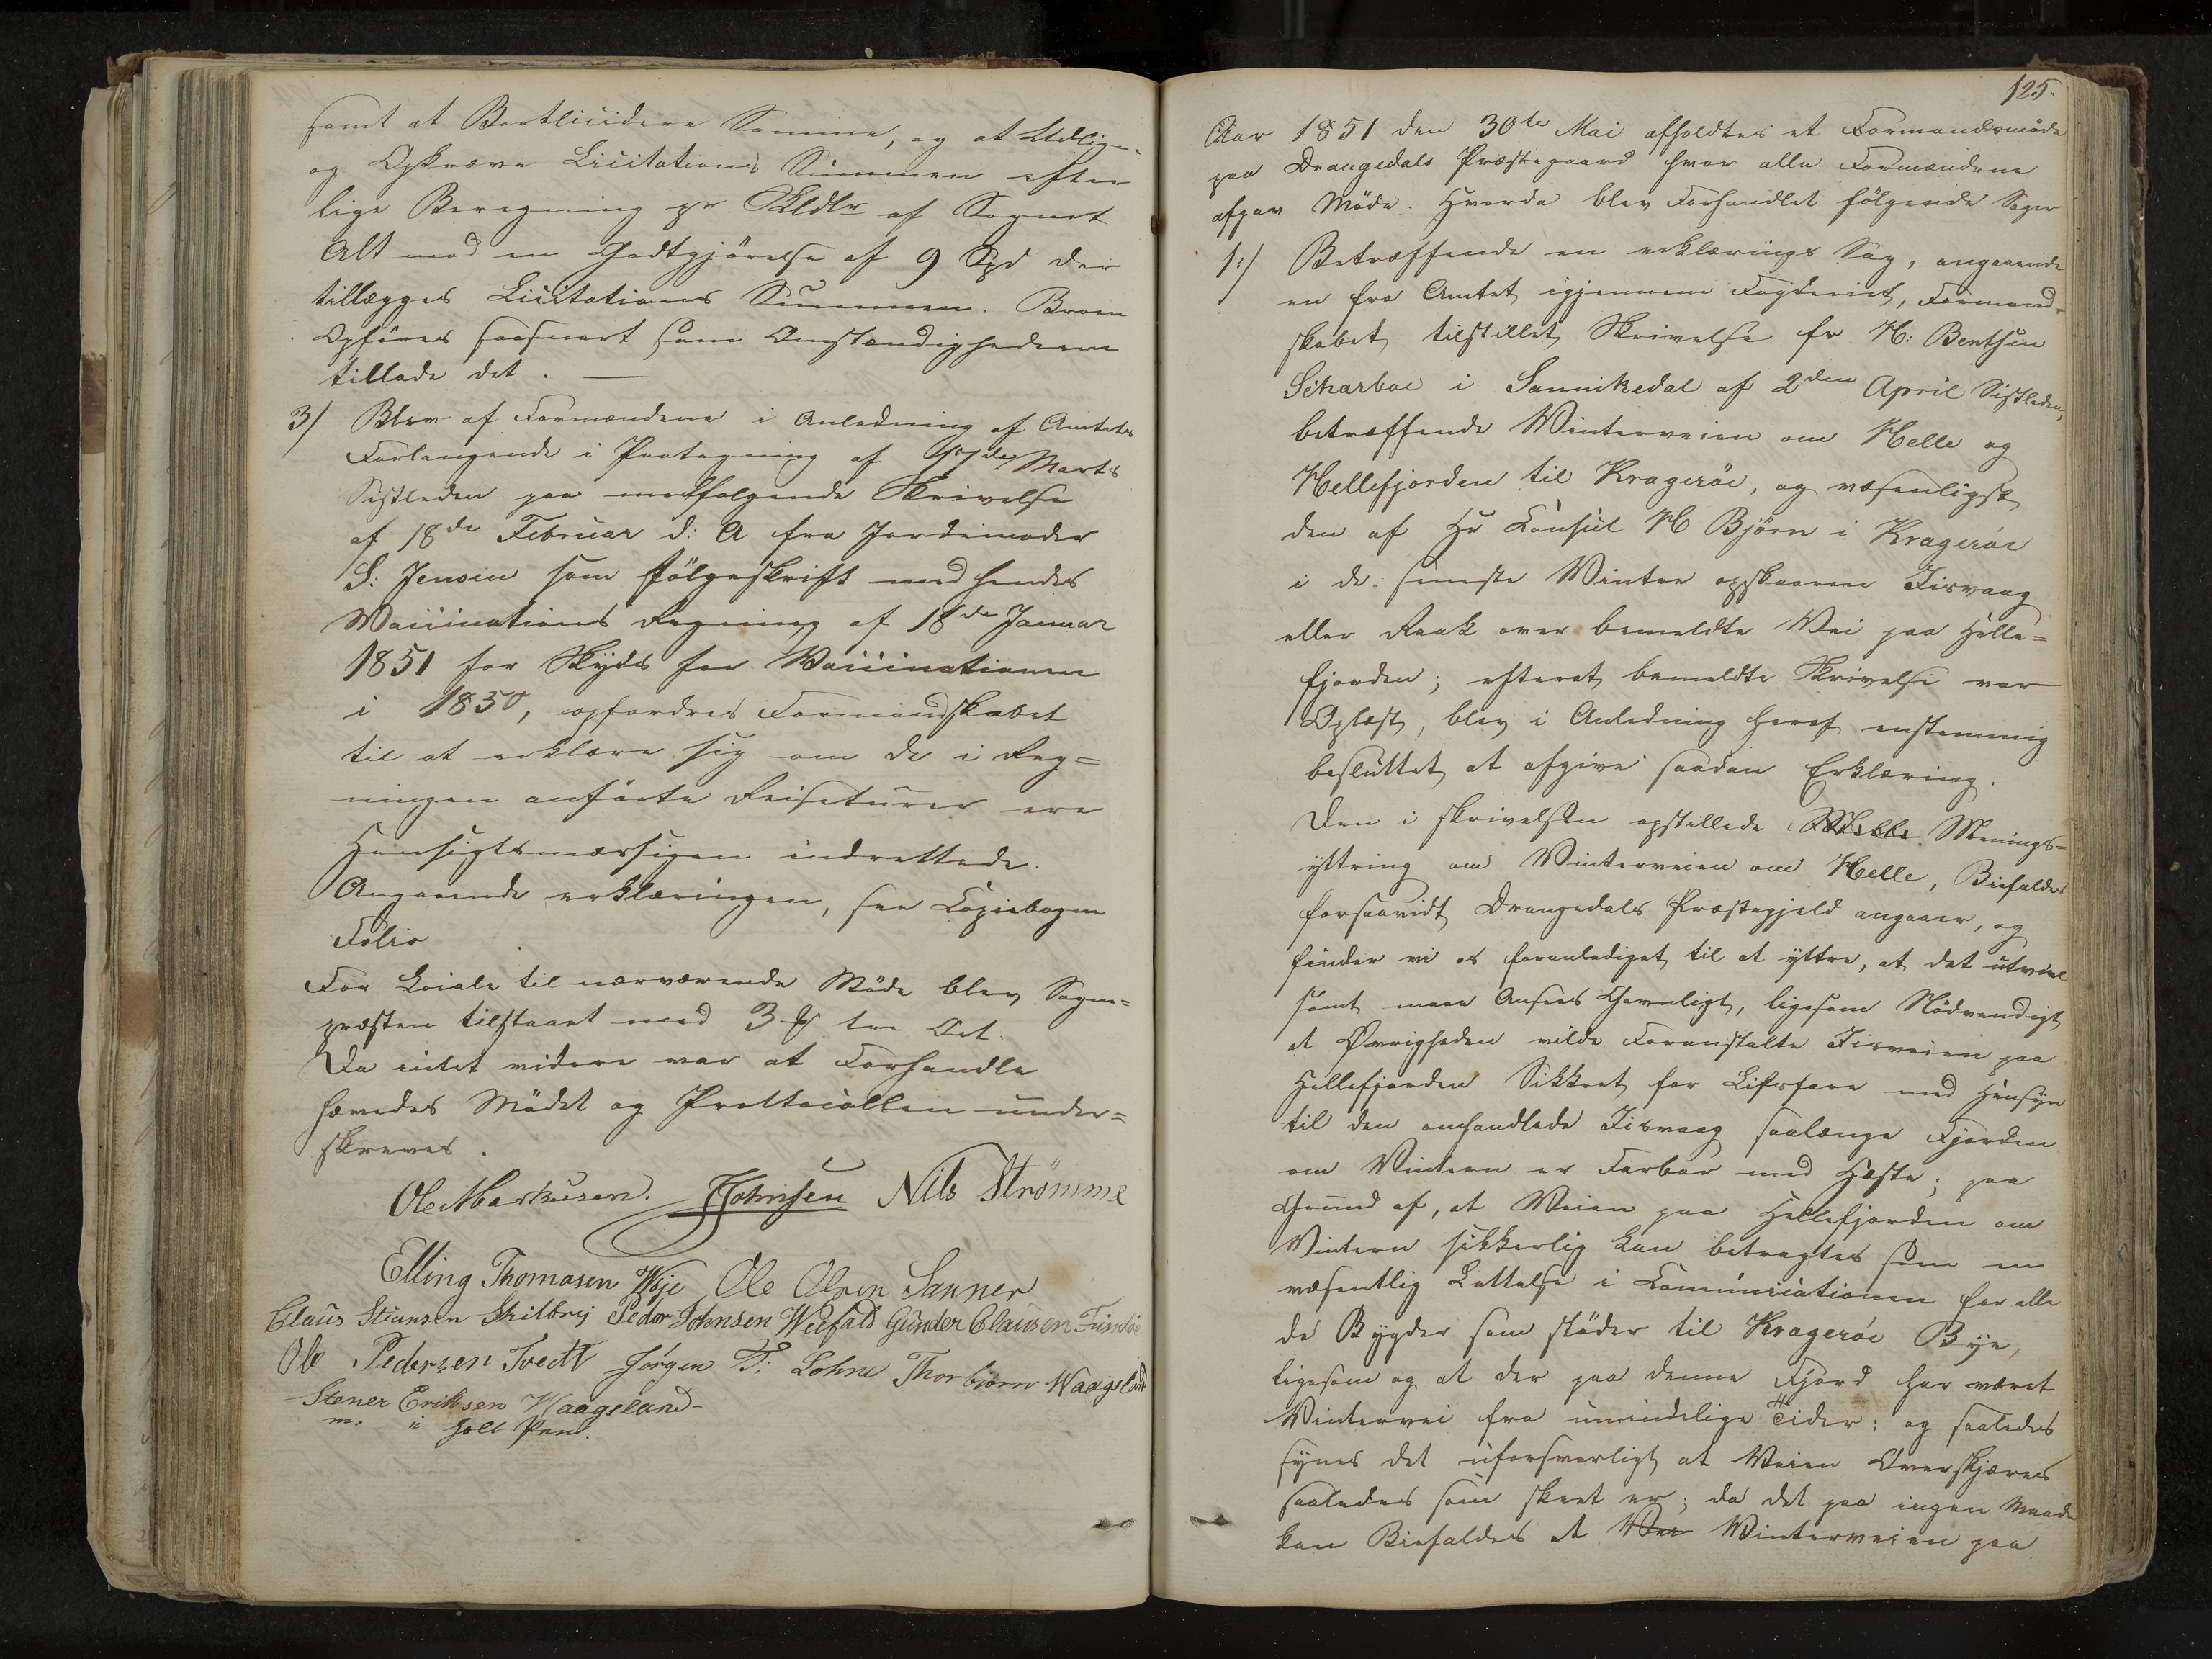 samt at Bortlicidere Samme, og at Udligne
og Opkræve Licitations Summen efter
lige Beregning pr Skldlr af Sognet
Alt mod en Godtgjörelse af 9 Spd der
tillægges Licitations Summen. Broen
Opföres saasnart som Omstændighederne
tillade det. —
3/ Blev af Formændene i Anledning af Amtets
Forlangende i Paategning af Marts
Sistleden paa medfølgende Skrivelse
af 18de Februar d: A fra Jordemoder
S: Jensen som fölgeskrift med hendes
Vaccinations Regning af 18de Januar
1851 for Skyds for Vaccinationen
i 1850, opfordres Formandskabet
til at erklære sig om de i Reg=
ningen anförte Reiseturer ere
Hensigtsmæssigen indrettede.
Angaaende erklæringen, see Copiebogen
Folio
For Locale til nærværende Möde blev Sogne=
præsten tilstaaet med 3 tre Ort.
Da intet videre var at Forhandle
hævedes Mödet og Prottocollen under=
skreves.
Ole Markusen. JJohnsen Nils Strömme
Elling Thomasen Woje Ole Olsen Sanner
Claus Stiansen Skilbrej Peder Johnsen Weefald Gunder Clausen
Ole Pedersen Tvedt Jörgen T: Lohne Thorbjörn Waagsland
Stener Eriksen Waagsland
m: i holt Pen.
125.
Aar 1851 den 30te Mai afholdtes et Formandsmöde
paa Drangedals Præstegaard hvor alle Formændene
afgav Möde. Hvorda blev Forhandlet fölgende Sager
1:/ Betræffende en erklærings Sag, angaaende
en fra Amtet igjennem Fogderiet, Formand-
skabet tilstillet Skrivelse fr H: Benthsen
Scharboe i Sannikedal af 2den April Sistleden,
betræffende Winterveien om Helle og
Hellefjorden til Kragerøe, og væsenligst
den af Hr Consul H Björn i Kragerøe
i de seneste Vintre opskaaren Iisvaag
eller Raak over bemeldte Vei paa Helle=
fjorden; efterat bemeldte Skrivelse var
Oplæst, blev i Anledning heraf enstemmig
besluttet at afgive saadan Erklæring.
Den i skrivelsen opstillede Menings=
yttring om Winterveien om Helle, Biefaldes
forsaavidt Drangedals Præstegjeld angaaer, og
finder vi os foranlediget til at yttre, at det utvivl
somt maae Ansees Gavnligt, ligesom Nödvendigt
at Øvrigheden vilde Foranstalte Iisveien paa
Hellefjorden Sikkret for Livsfare med Hensyn
til den omhandlede Iisvaag saalænge Fjorden
om Vinteren er Farbar med Heste; paa
Grund af, at Veien paa Hellefjorden om
Vintern sikkerlig kan betragtes som en
væsentlig Lettelse i Communicationen for alle
de Bygder som stöder til Kragerøe Bye,
ligesom og at der paa denne Fjord har været
Vintervei fra umindelige Tider; og saaledes
synes det uforsvarligt at Veien Overskjæres
saaledes som skeet er; da det paa ingen Maade
kan Biefaldes at Vei Winterveien paa